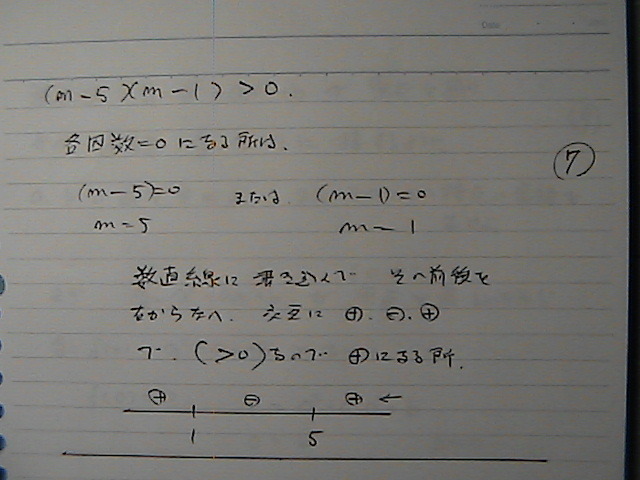 (m-5)(m-1)>0.
各因数=0になる所は、
⑦
(m-5)=0 または (m-1)=0
m=5 m=1
数直線に書き込んで その前後を
右から左へ、交互に⊕.⊖.⊕
で、(>0)なので ⊕になる所.
⊕ ⊖ ⊕ ←
1 5